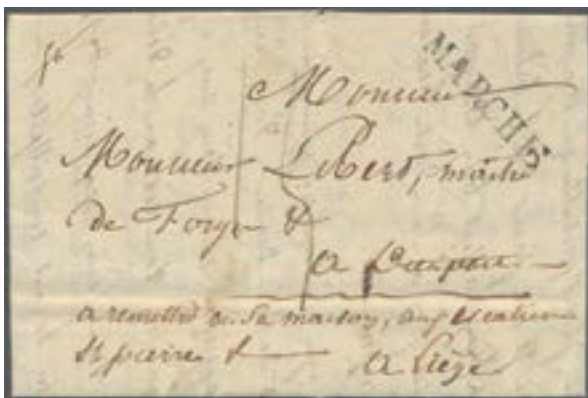 MARCHE
Monsieur
Monsieur Libert, maitre
de Forge &
a
a remettre en Sa maison, aux escaliers
St pierre &
a Liège